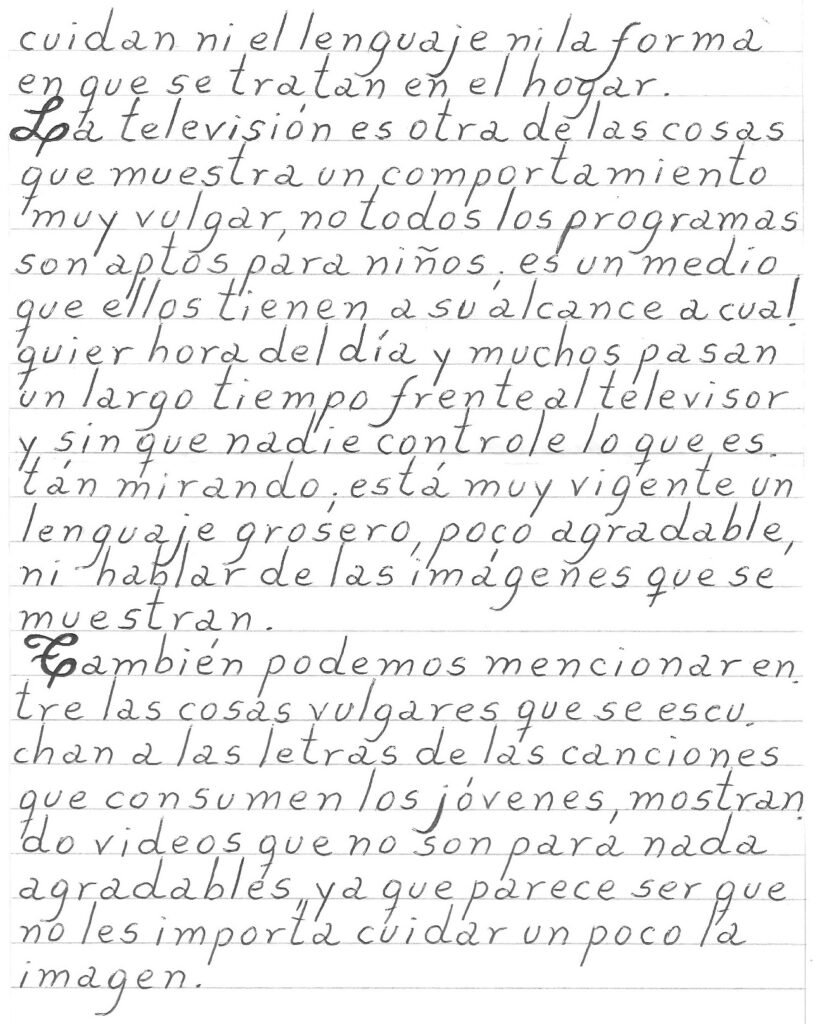 cuidan ni el lenguaje ni la forma
en que se tratan en el hogar.
La televisión es otra de las cosas
que muestra un comportamiento
muy vulgar, no todos los programas
son aptos para niños. es un medio
que ellos tienen a su alcance a cual
quier hora del día y muchos pasan
un largo tiempo frente al televisor
y sin que nadie controle lo que es.
tán mirando; está muy vigente un
lenguaje grosero, poco agradable,
ni hablar de las imágenes que se
muestran.
También podemos mencionar en.
tre las cosas vulgares que se escu.
chan a las letras de las canciones
que consumen los jóvenes, mostran.
do videos que no son para nada
agradables, ya que parece ser que
no les importa cuidar un poco la
imagen.